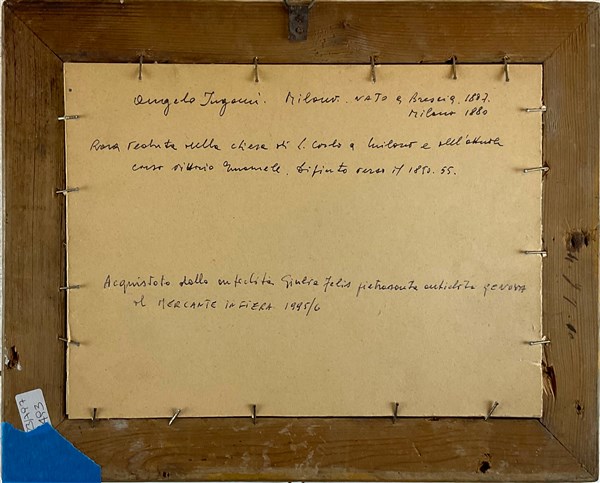 Angelo Inganni. Milano. NATO a Brescia. 1807.
Milano 1880
Rara veduta della chiesa di S. Carlo a Milano e dell'attuale
corso Vittorio Emanuele. Dipinto verso il 1850. 55.
Acquistato dalla Giulia Felis pietrasanta GENOVA
al MERCANTE IN FIERA 1995/6